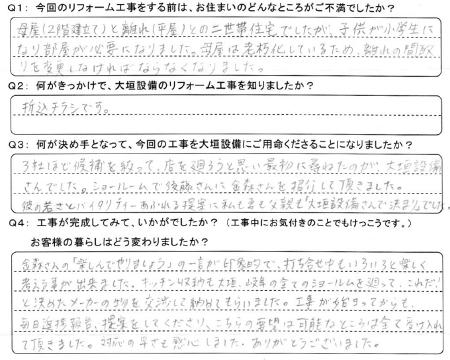 Q1: 今回のリフォーム工事をする前は、お住まいのどんなところがご不満でしたか?
母屋(2階建立て)と離れ(平屋)との二世帯住宅でしたが、子供が小学生に
なり部屋が必要になりました。母屋は老朽化しているため、離れの間取
りを変更しなければならなくなりました。
Q2: 何がきっかけで、大垣設備のリフォーム工事を知りましたか?
折込チラシです。
Q3: 何が決め手となって、今回の工事を大垣設備にご用命くださることになりましたか?
3社ほど候補を絞って、店を廻ろうと思い最初に尋ねたのが、大垣設備
さんでした。ショールームで後藤さんに金森さんを紹介して頂きました。
彼の若さとバイタリティーあふれる提案に私も妻も父親も「大垣設備さんで決まり」でした。
Q4: 工事が完成してみて、いかがでしたか? (工事中にお気付きのことでもけっこうです。)
お客様の暮らしはどう変わりましたか?
金森さんの「楽しんでやりましょう」の一言が印象的で、打ち合せ中もいろいろと楽しく
考える事が出来ました。キッチン収納も大垣、岐阜の全てのショールームを廻って、これだ!!
と決めたメーカーの物を交渉して納めてもらいました。工事が始まってからも、
毎日進捗報告、提案をしてくださり、こちらの要望は可能なところは全て受け入れ
て頂きました。対応の早さも感心しました。ありがとうございました。